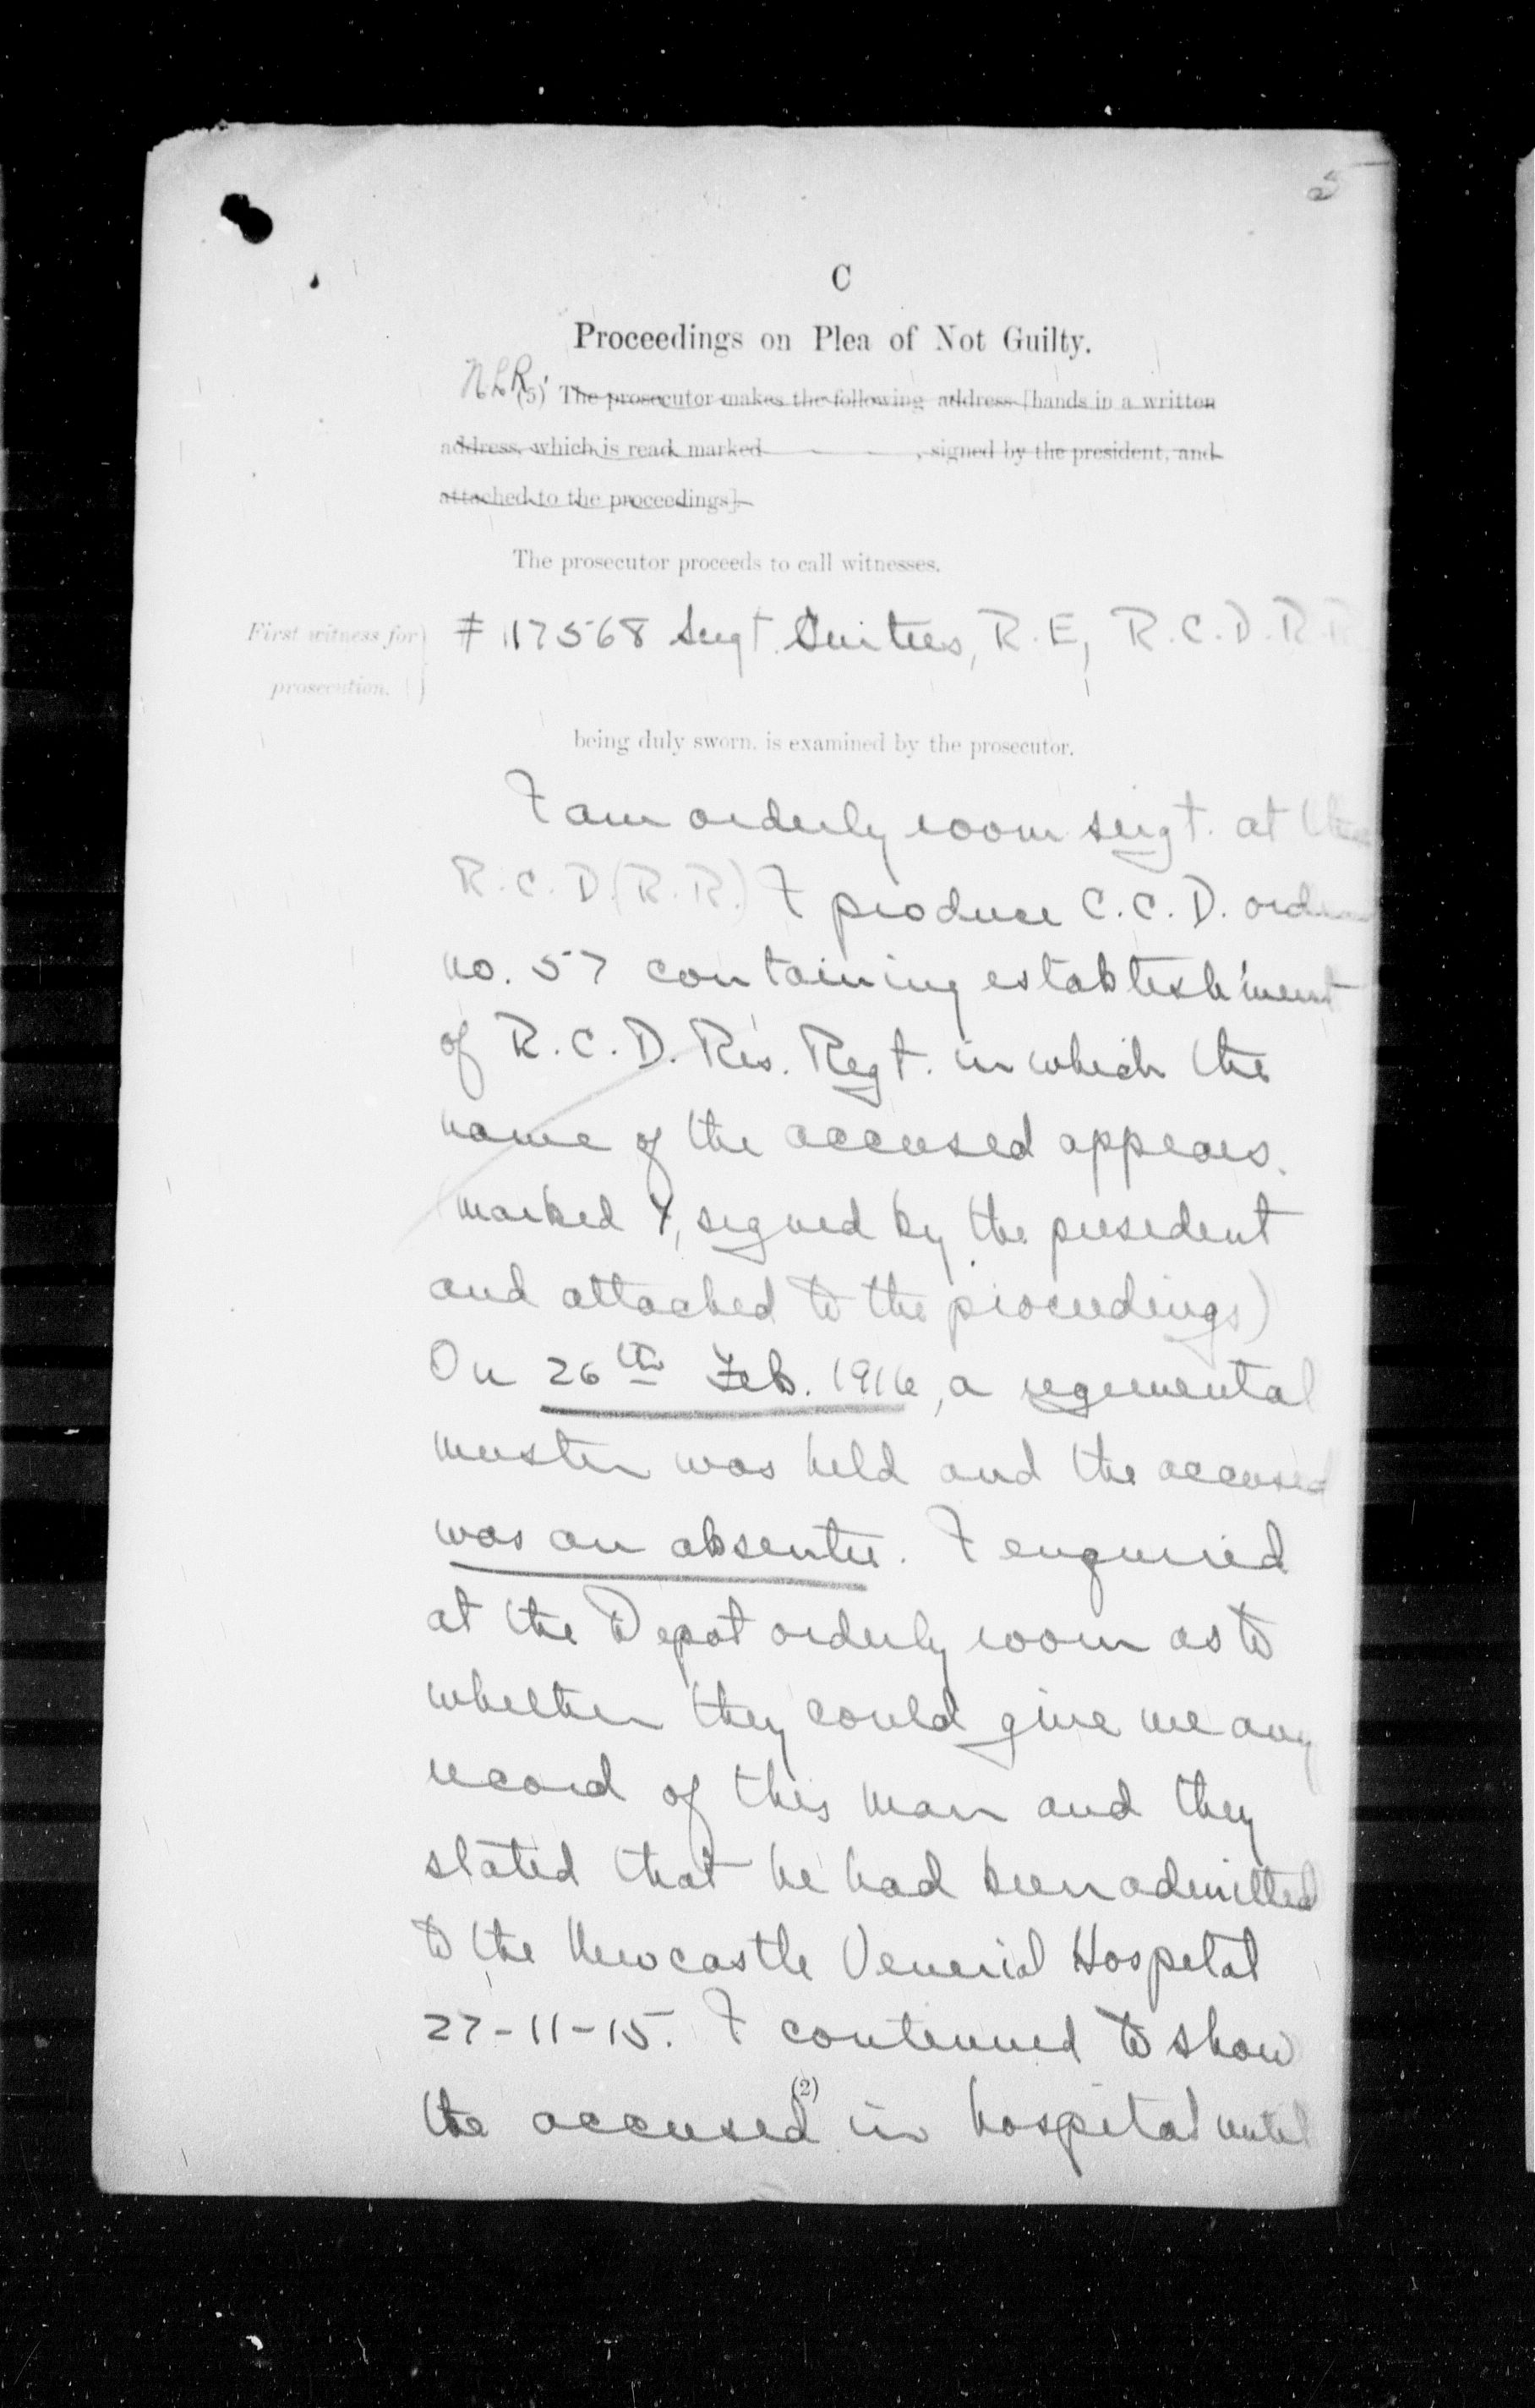 5
C
Proceedings on Plea of Not Guilty.
N.L.R.
(5) The prosecutor makes the following address [hands in a written
address, which is read, marked , signed by the president, and
attached to the proceedings].
The prosecutor proceeds to call witnesses.
First witness for
prosecution.
# 117568 Sergt. R.E, R.C.D.R.R
being duly sworn, is examined by the prosecutor.
I am orderly room sergt. at the
R.C.D. (R.R.) I produce C.C.D. order
no. 57 containing establishment
of R.C.D. Res. Regt. in which the
name of the accused appears.
(marked Y, signed by the president
and attached to the proceedings)
On 26th Feb. 1916, a regimental
muster was held and the accused
was an absentee. I enquired
at the Depot orderly room as to
whether they could give me any
record of this man and they
stated that he had been admitted
to the Newcastle Venerial Hospital
27-11-15. I continued to show
the accused in hospital until
(2)